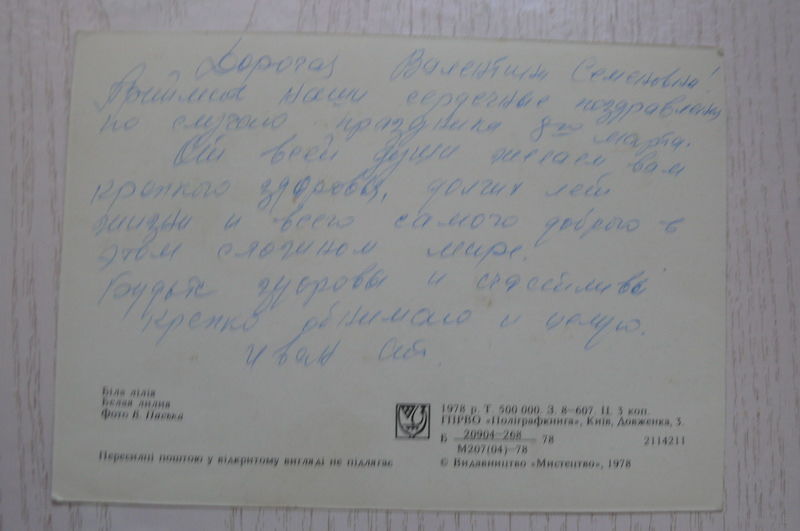 Дорогая Валентина Семеновна!
Приймите наши сердечные поздравления
по случаю праздника 8го марта.
От всей души желаем вам
крепкого здоровья, долгих лет
жизни и всего самого доброго в
этом сложном мире.
Будьте здоровы и счастливы
крепко обнимаю и целую.
Иван
Біла лілія
Белая лилия
Фото В. Паська
1978 р. Т. 500 000. З. 8–607. Ц. 3 коп.
ГПРВО «Поліграфкнига», Київ, Довженка, 3.
Б 20904–268 78 2114211
М207(04)–78
Пересилці поштою у відкритому вигляді не підлягає
© Видавництво «Мистецтво», 1978